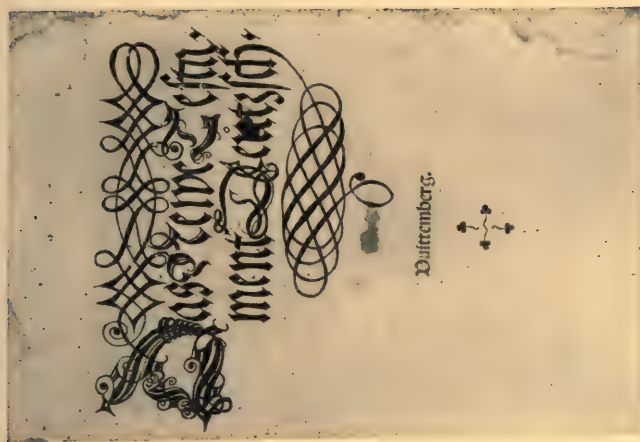 Das Newe Testa⸗
ment Deutzsch.
Vuittemberg.